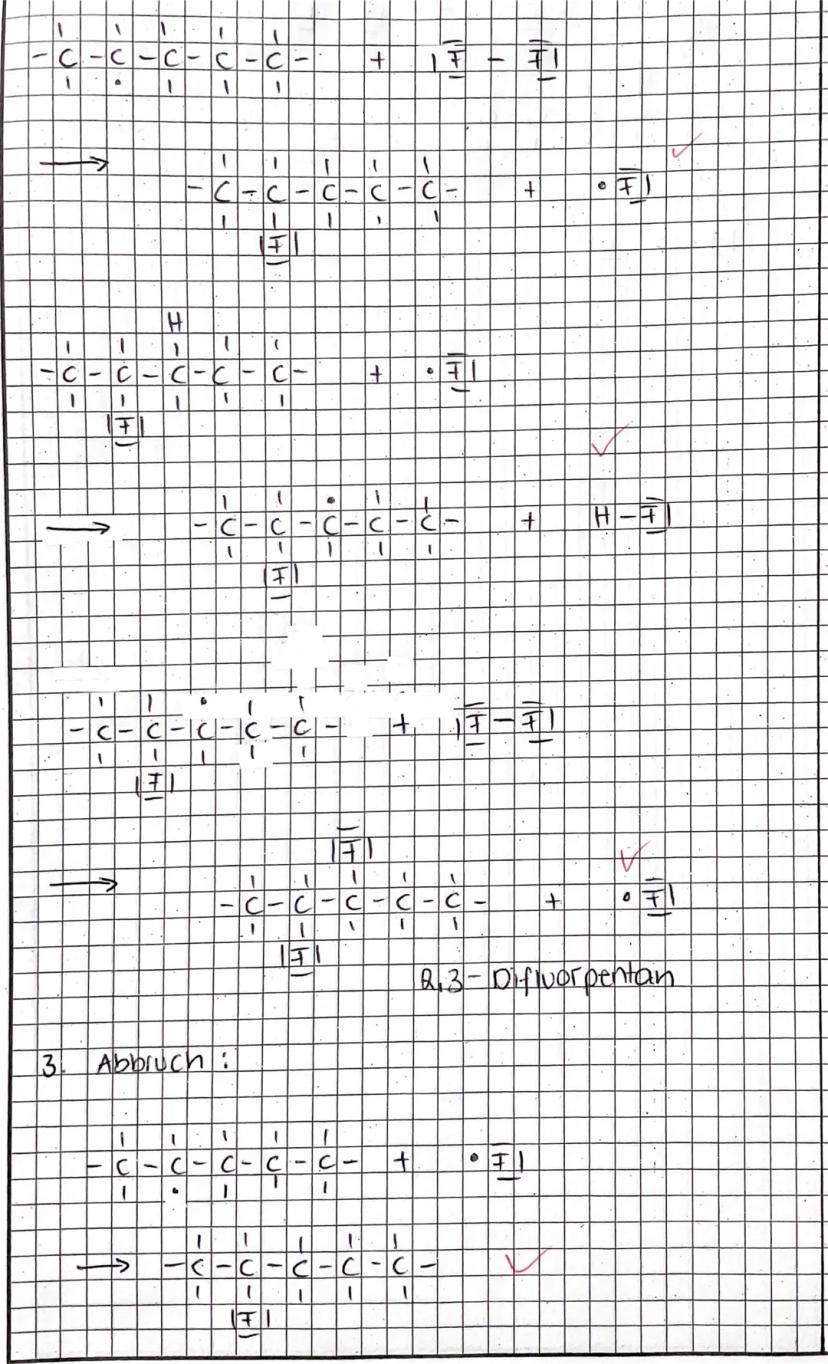 -C-C-C-C-C- + |F-F|
→ -C-C-C-C-C- + •F|
|F|
H
-C-C-C-C-C- + •F|
|F|
→ -C-C-C-C-C- + H-F|
|F|
-C-C-C-C-C- + |F-F|
|F|
|F|
→ -C-C-C-C-C- + •F|
|F|
2,3-Difluorpentan
3. Abbruch:
-C-C-C-C-C- + •F|
→ -C-C-C-C-C-
|F|